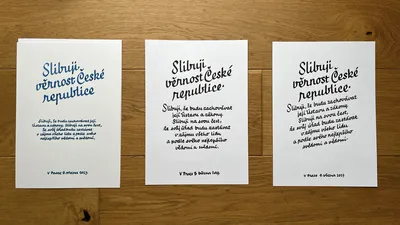 Slibuji
věrnost České
republice
Slibuji, že budu zachovávat
její Ústavu a zákony.
Slibuji na svou čest,
že svůj úřad budu zastávat
v zájmu všeho lidu
a podle svého nejlepšího
vědomí a svědomí.
V Praze 9. března 2023
Slibuji
věrnost České
republice.
Slibuji, že budu zachovávat
její Ústavu a zákony.
Slibuji na svou čest,
že svůj úřad budu zastávat
v zájmu všeho lidu
a podle svého nejlepšího
vědomí a svědomí.
V Praze 9. března 2023
Slibuji
věrnost České
republice.
Slibuji, že budu zachovávat
její Ústavu a zákony.
Slibuji na svou čest,
že svůj úřad budu zastávat
v zájmu všeho lidu
a podle svého nejlepšího
svědomí a vědomí.
V Praze 9. března 2023